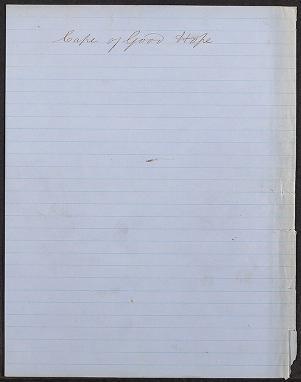 Cape of Good Hope